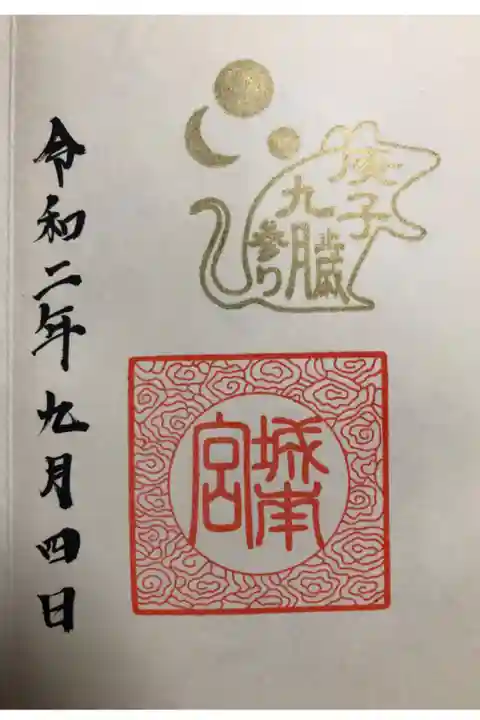 庚子歳
九月
参り
城南
宮
令和二年九月四日